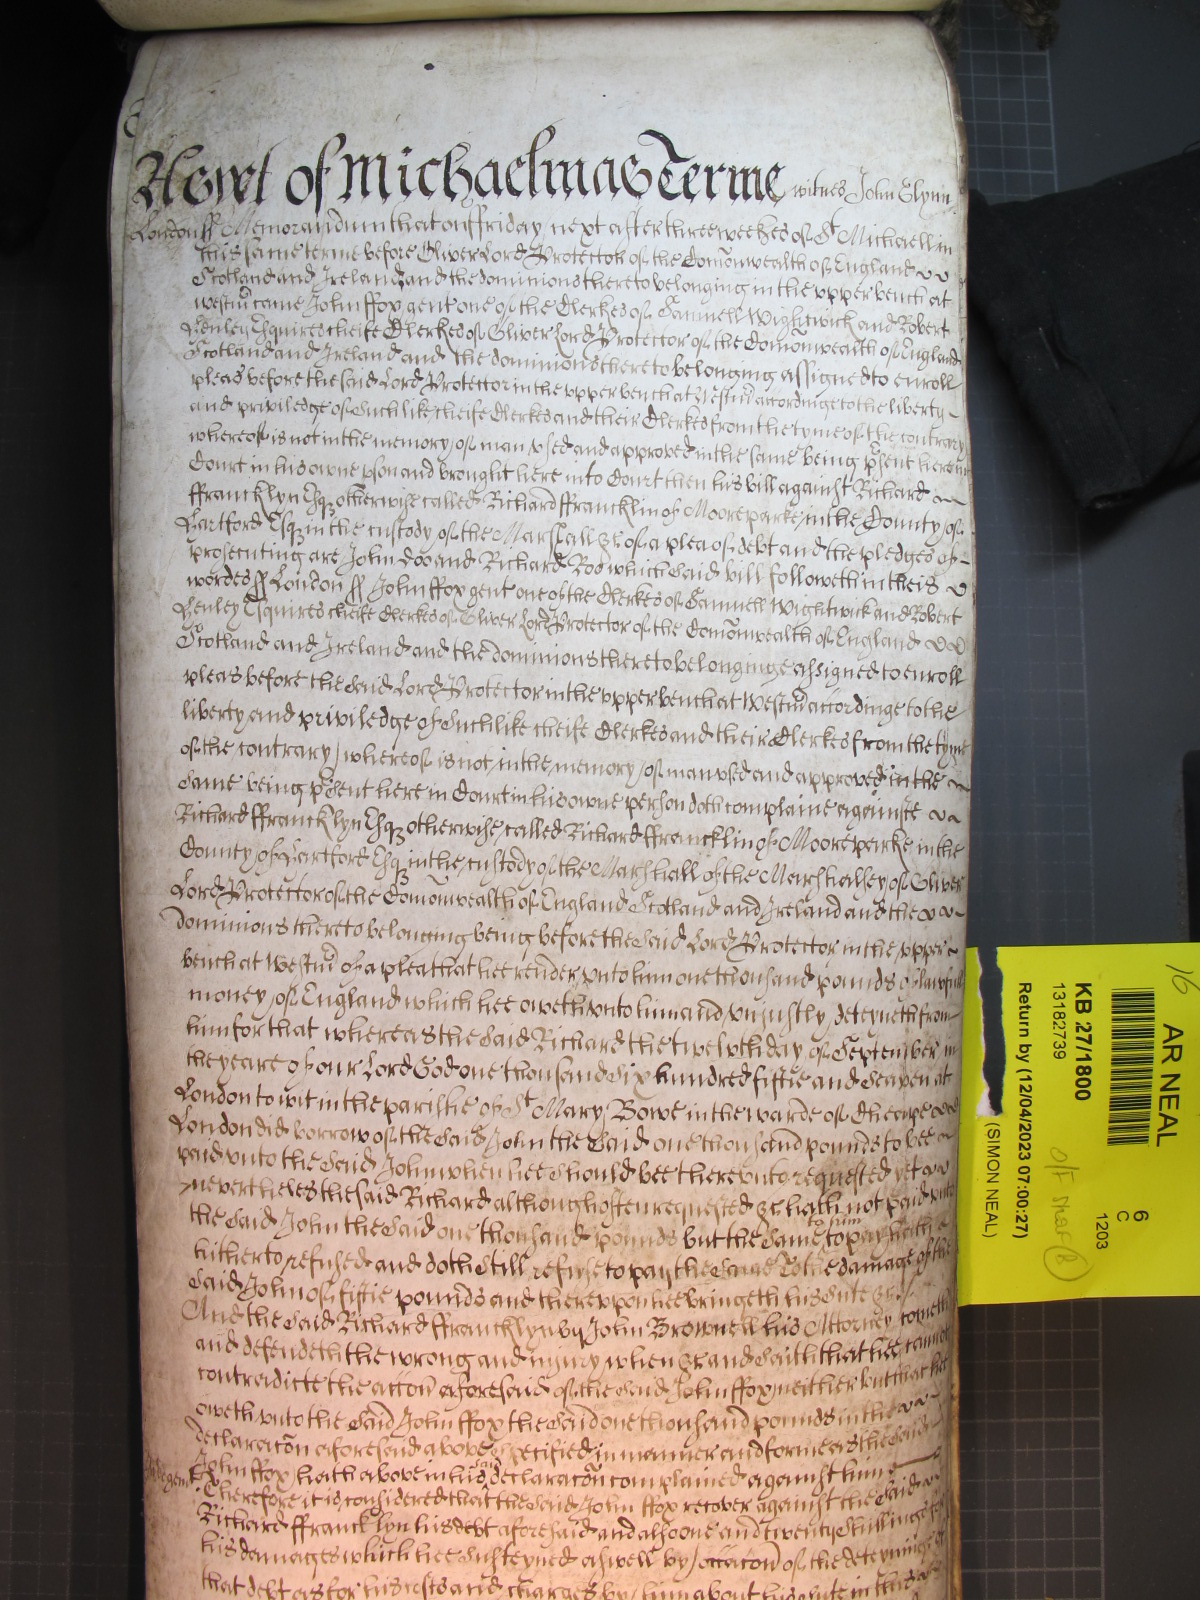 As yet of Michaelmas Terme witnes John Glynn
London ss Memorandum that on ffriday next after three weekes of St Michaell in
this same terme before Oliver Lord Protector of the Comonwealth of England
Scotland and Ireland and the dominions thereto belonging in the upper bench at
westm came John ffox gent one of the Clerkes of Samuell Wightwick and Robert
Henley Esquires cheife Clerkes of Oliver Lord Protector of the Comonwealth of England
Scotland and Ireland and the dominions thereto belonging assigned to enroll
pleas before the said Lord Protector in the upper bench at Westm accordinge to the liberty
and priviledge of such like cheife Clerkes and their Clerkes from the tyme of the contrary
whereof is not in the memory of man used and approved in the same being psent here in
Court in his owne pson and brought here into Court then his bill against Richard
ffrancklyn Esq otherwise called Richard ffrancklin of Mooreparke in the County of
Hartford Esq in the custody of the Marshall &c of a plea of debt and the pledges of
prosecuting are John Doo and Richard Roo which said bill followeth in theis
wordes ss London ss John ffox gent one of the Clerkes of Samuell Wightwick and Robert
Henley Esquires cheife Clerkes of Oliver Lord Protector of the Comonwealth of England
Scotland and Ireland and the dominions thereto belonginge assigned to enroll
pleas before the said Lord Protector in the upper bench at Westm accordinge to the
liberty and priviledge of such like cheife Clerkes and their Clerkes from the tyme
of the contrary whereof is not in the memory of man used and approved in the
same being psent here in Court in his owne person doth complaine againste
Richard ffrancklyn Esq otherwise called Richard ffrancklin of Mooreparke in the
County of Hartford Esq in the custody of the Marshall of the Marshalsey of Oliver
Lord Protector of the Comonwealth of England Scotland and Ireland and the
dominions thereto belonging being before the said Lord Protector in the upper
bench at Westm of a plea that hee render unto him one thousand pounds of lawfull
money of England which hee oweth unto him and unjustly deteyneth from
him for that whereas the said Richard the twelvth day of September in
the yeare of our Lord God one thousand six hundred fiftie and seaven at
London to wit in the parishe of St Mary Bowe in the warde of Cheape
London did borrow of the said John the said one thousand pounds to bee
paid unto the said John when hee should bee thereunto requested yet
neverthelesse the said Richard although often requested &c hath not paid unto
the said John the said one thousand pounds but the same to him to pay hath
hitherto refused and doth still refuse to pay the same To the damage of the
said John of fiftie pounds and thereupon hee bringeth his suite &c
And the said Richard ffrancklyn by John Brownell his Attorney cometh
and defendeth the wrong and injury when &c and saith that hee cannot
contradicte the accon aforesaid of the said John ffox neither but that hee
oweth unto the said John ffox the said one thousand pounds in the
declaracon aforesaid above specified in manner and forme as the said
John ffox hath above in his said declaracon complained against him
Judgemt Therefore it is considered that the said John ffox recover against the said
Richard ffrancklyn his debt aforesaid and also one and twenty shillings for
his damages which hee susteyned aswell by occacon of the deteyning of
that debt as for his costs and charges by him about his suite in this
16
AR NEAL
6
C
1203
KB 27/1800
13182739
Return by (12/04/2023 07:00:27)
(SIMON NEAL)